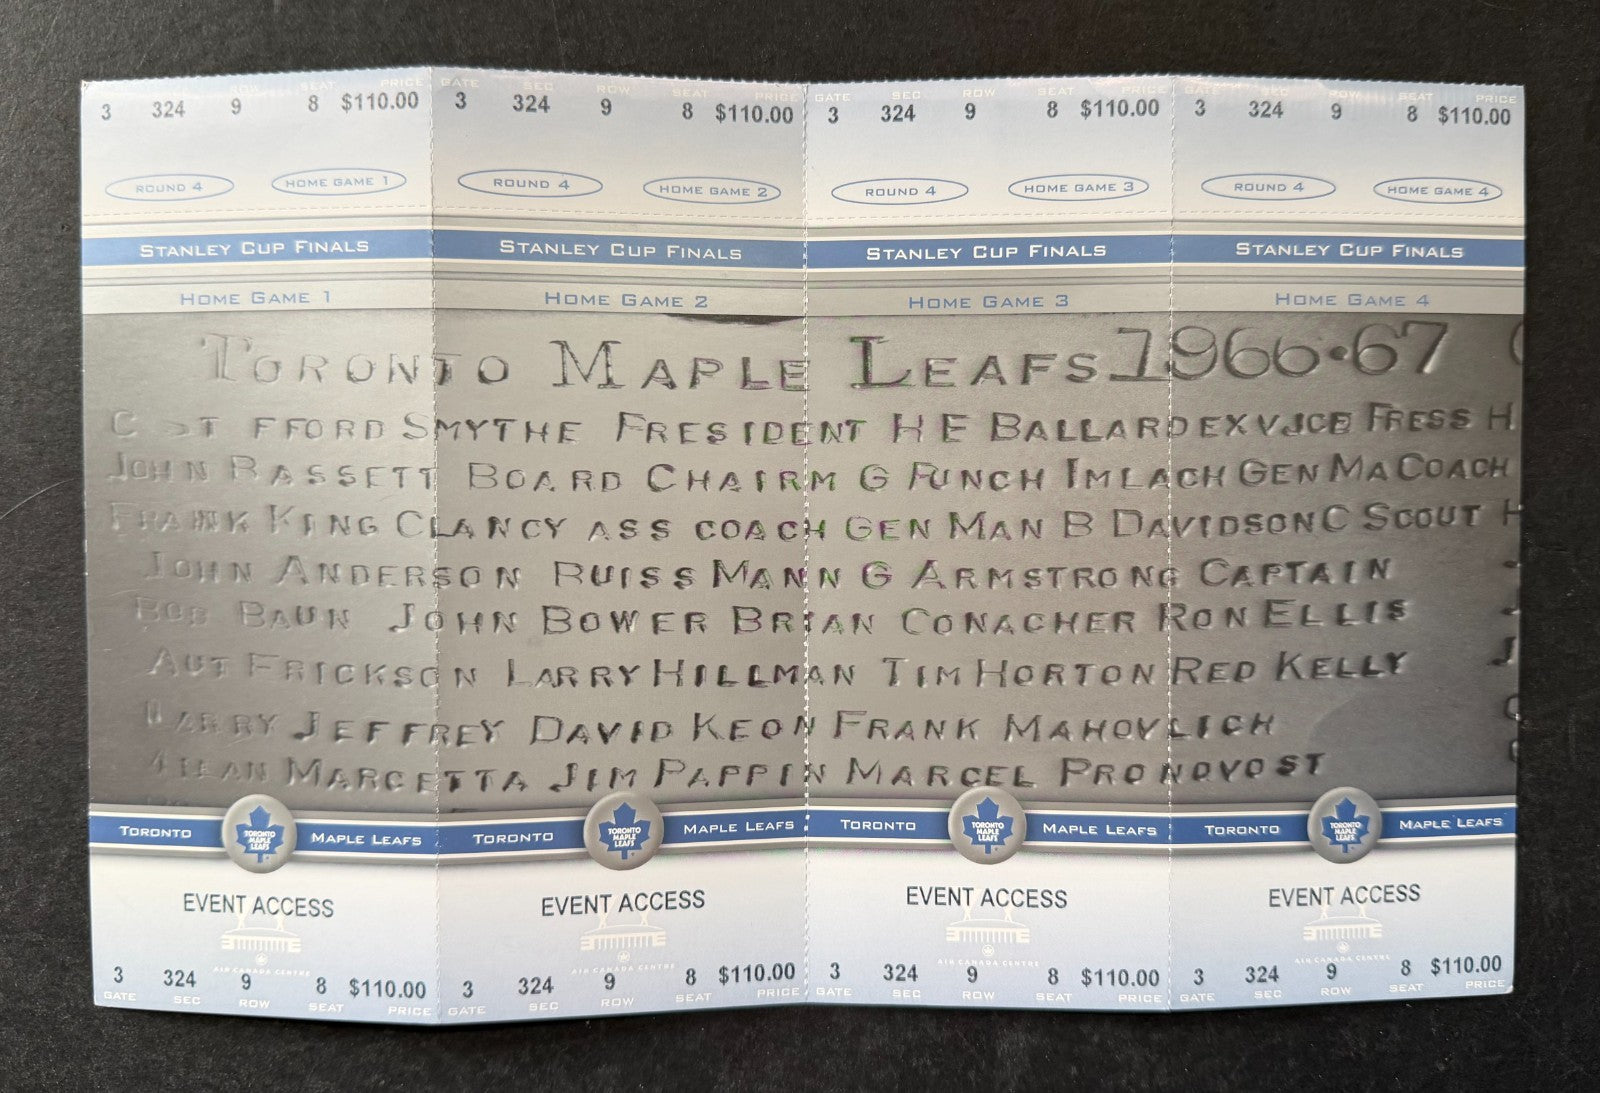 GATE SEC ROW SEAT PRICE GATE SEC ROW SEAT PRICE GATE SEC ROW SEAT PRICE GATE SEC ROW SEAT PRICE
3 324 9 8 $110.00 3 324 9 8 $110.00 3 324 9 8 $110.00 3 324 9 8 $110.00
ROUND 4 HOME GAME 1 ROUND 4 HOME GAME 2 ROUND 4 HOME GAME 3 ROUND 4 HOME GAME 4
STANLEY CUP FINALS STANLEY CUP FINALS STANLEY CUP FINALS STANLEY CUP FINALS
HOME GAME 1 HOME GAME 2 HOME GAME 3 HOME GAME 4
TORONTO MAPLE LEAFS 1966•67
FFORD SMYTHE PRESIDENT H E BALLARD EX VICE PRESS H
JOHN BASSETT BOARD CHAIRM G PUNCH IMLACH GEN MA COACH
FRANK KING CLANCY ASS COACH GEN MAN B DAVIDSON C SCOUT H
JOHN ANDERSON BUISS MANN G ARMSTRONG CAPTAIN
BOB BAUN JOHN BOWER BRIAN CONACHER RON ELLIS
AUT ERICKSON LARRY HILLMAN TIM HORTON RED KELLY
LARRY JEFFREY DAVID KEON FRANK MAHOVLICH
MARCETTA JIM PAPPIN MARCEL PRONOVOST
TORONTO TORONTO MAPLE LEAFS MAPLE LEAFS TORONTO TORONTO MAPLE LEAFS MAPLE LEAFS TORONTO TORONTO MAPLE LEAFS MAPLE LEAFS TORONTO TORONTO MAPLE LEAFS MAPLE LEAFS
EVENT ACCESS EVENT ACCESS EVENT ACCESS EVENT ACCESS
AIR CANADA CENTRE AIR CANADA CENTRE AIR CANADA CENTRE AIR CANADA CENTRE
3 324 9 8 $110.00 3 324 9 8 $110.00 3 324 9 8 $110.00 3 324 9 8 $110.00
GATE SEC ROW SEAT PRICE GATE SEC ROW SEAT PRICE GATE SEC ROW SEAT PRICE GATE SEC ROW SEAT PRICE